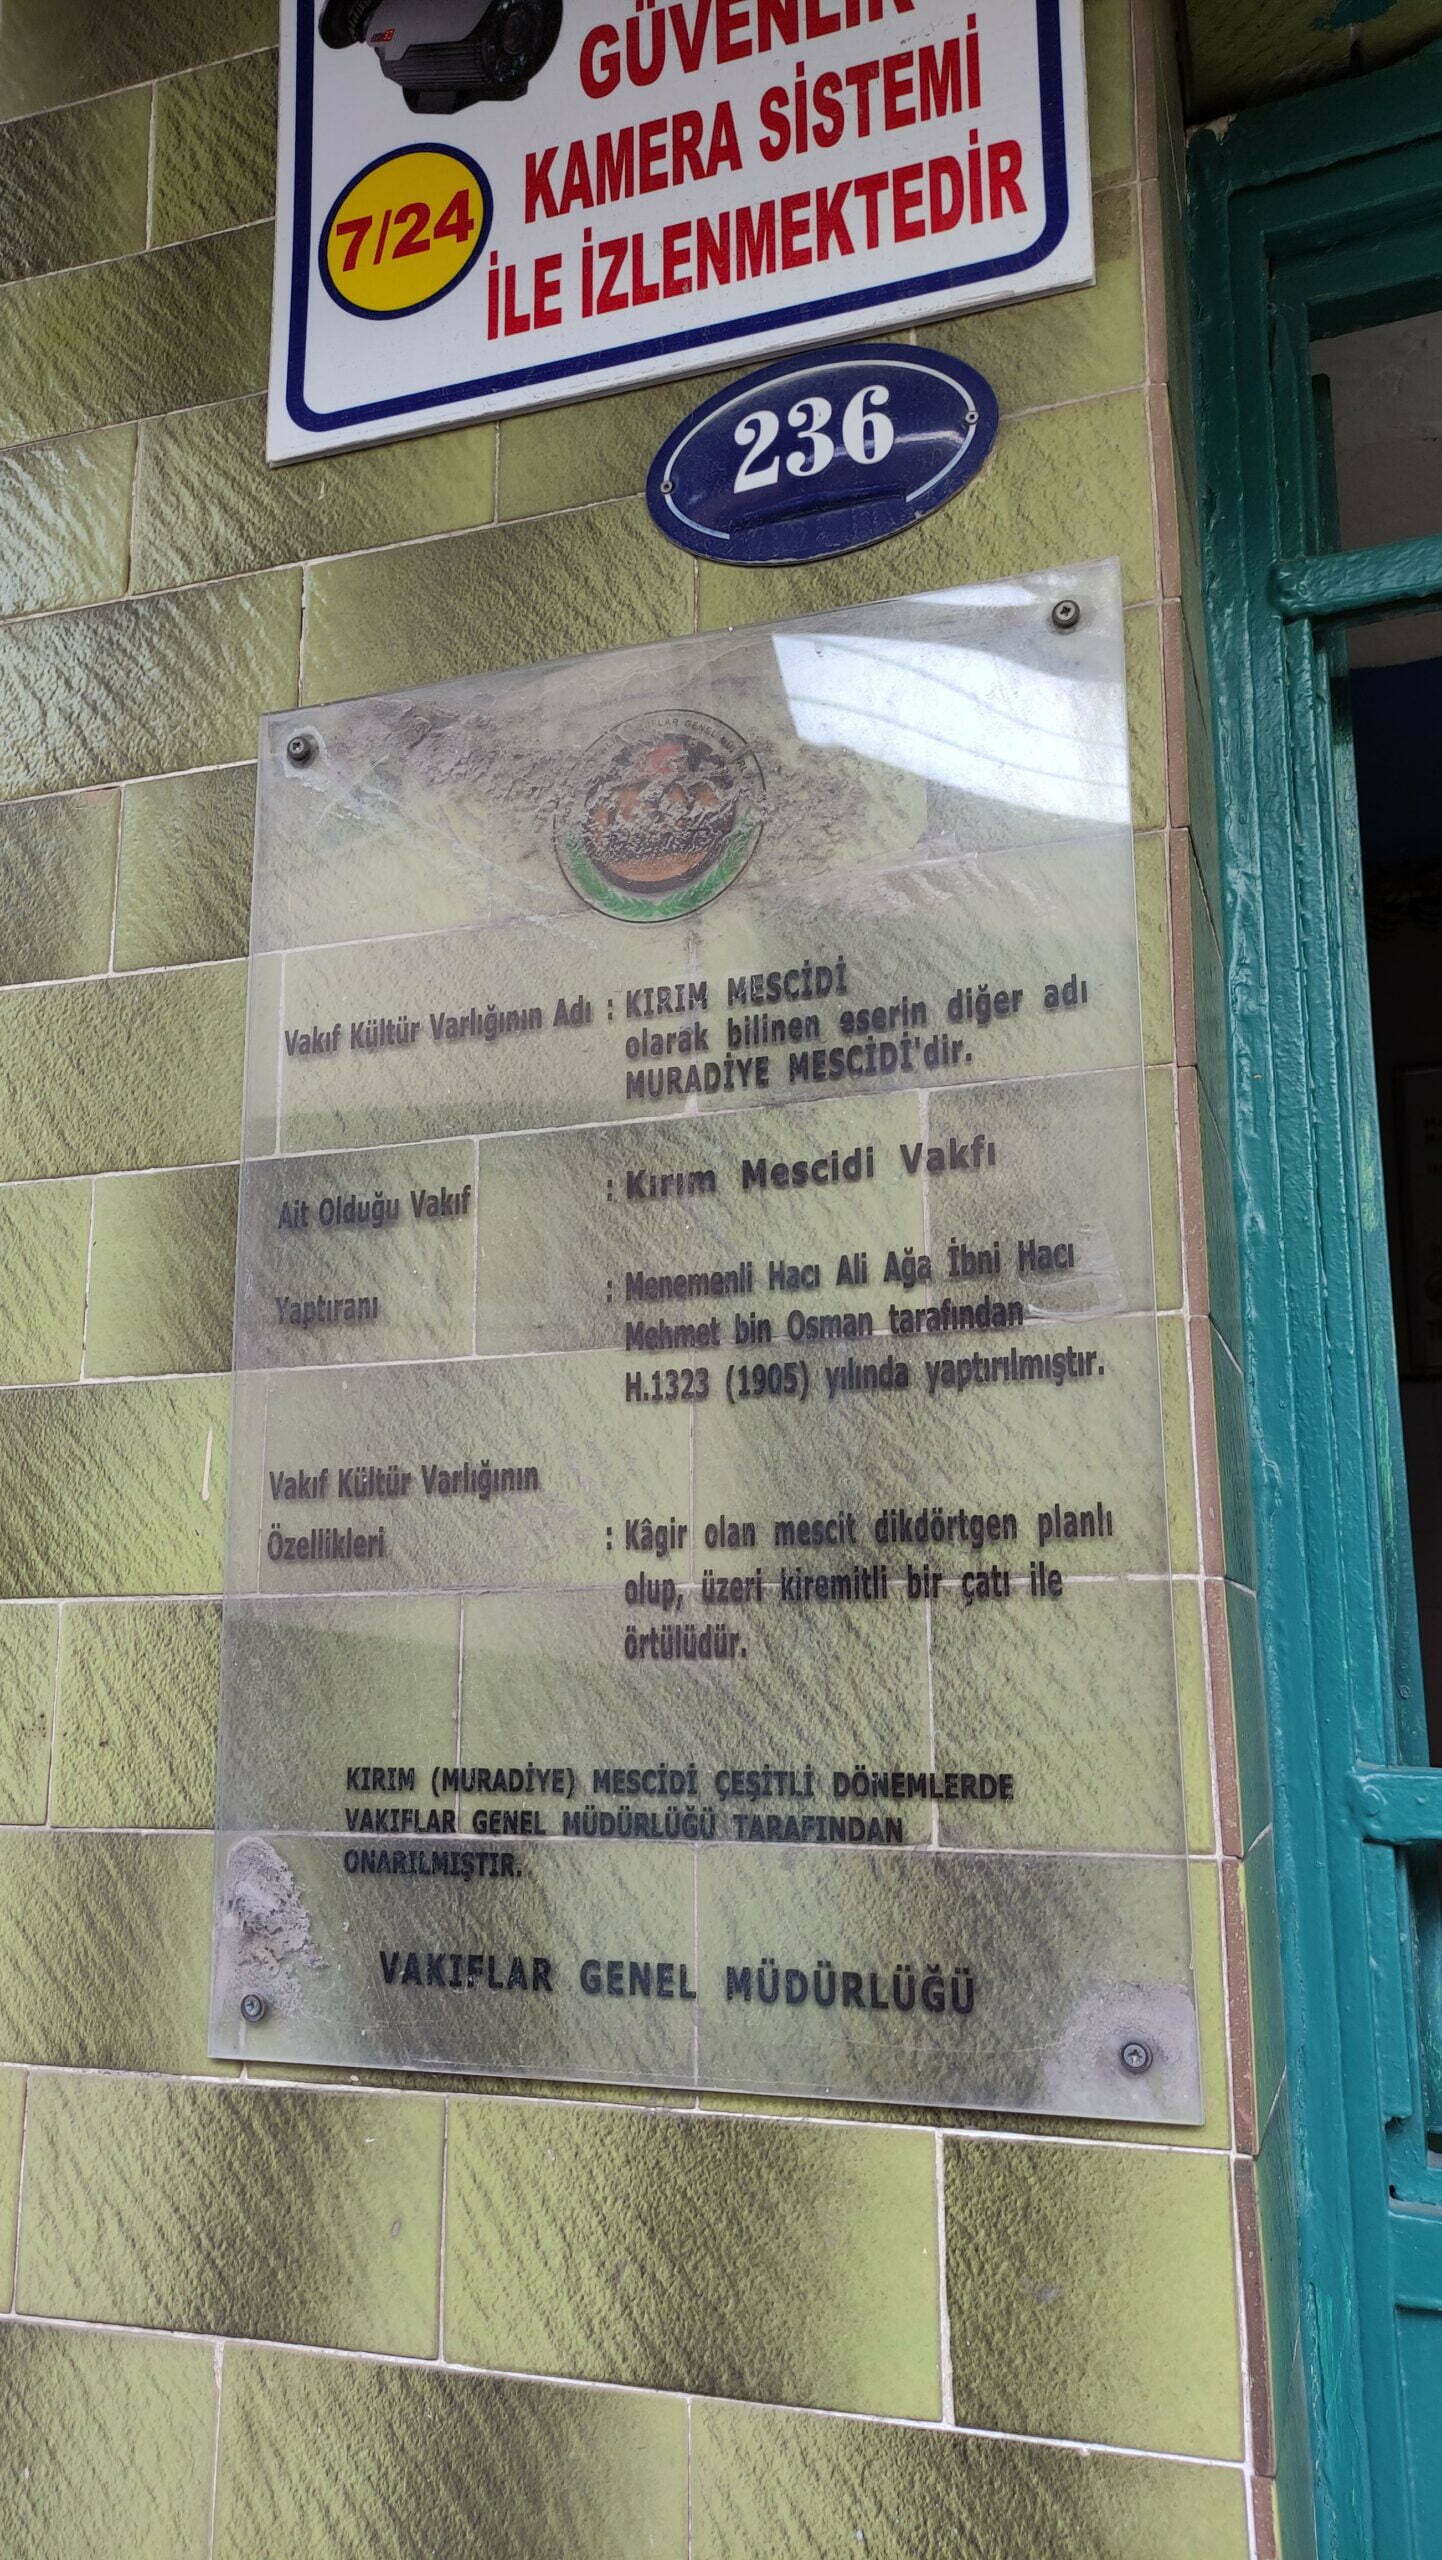 GÜVENLİK
KAMERA SİSTEMİ
7/24
İLE İZLENMEKTEDİR
236
Vakıf Kültür Varlığının Adı : KIRIM MESCİDİ
olarak bilinen eserin diğer adı
MURADİYE MESCİDİ'dir.
Ait Olduğu Vakıf : Kırım Mescidi Vakfı
Yaptıranı : Menemenli Hacı Ali Ağa İbni Hacı
Mehmet bin Osman tarafından
H.1323 (1905) yılında yaptırılmıştır.
Vakıf Kültür Varlığının
Özellikleri : Kâgir olan mescit dikdörtgen planlı
olup, üzeri kiremitli bir çatı ile
örtülüdür.
KIRIM (MURADİYE) MESCİDİ ÇEŞİTLİ DÖNEMLERDE
VAKIFLAR GENEL MÜDÜRLÜĞÜ TARAFINDAN
ONARILMIŞTIR.
VAKIFLAR GENEL MÜDÜRLÜĞÜ